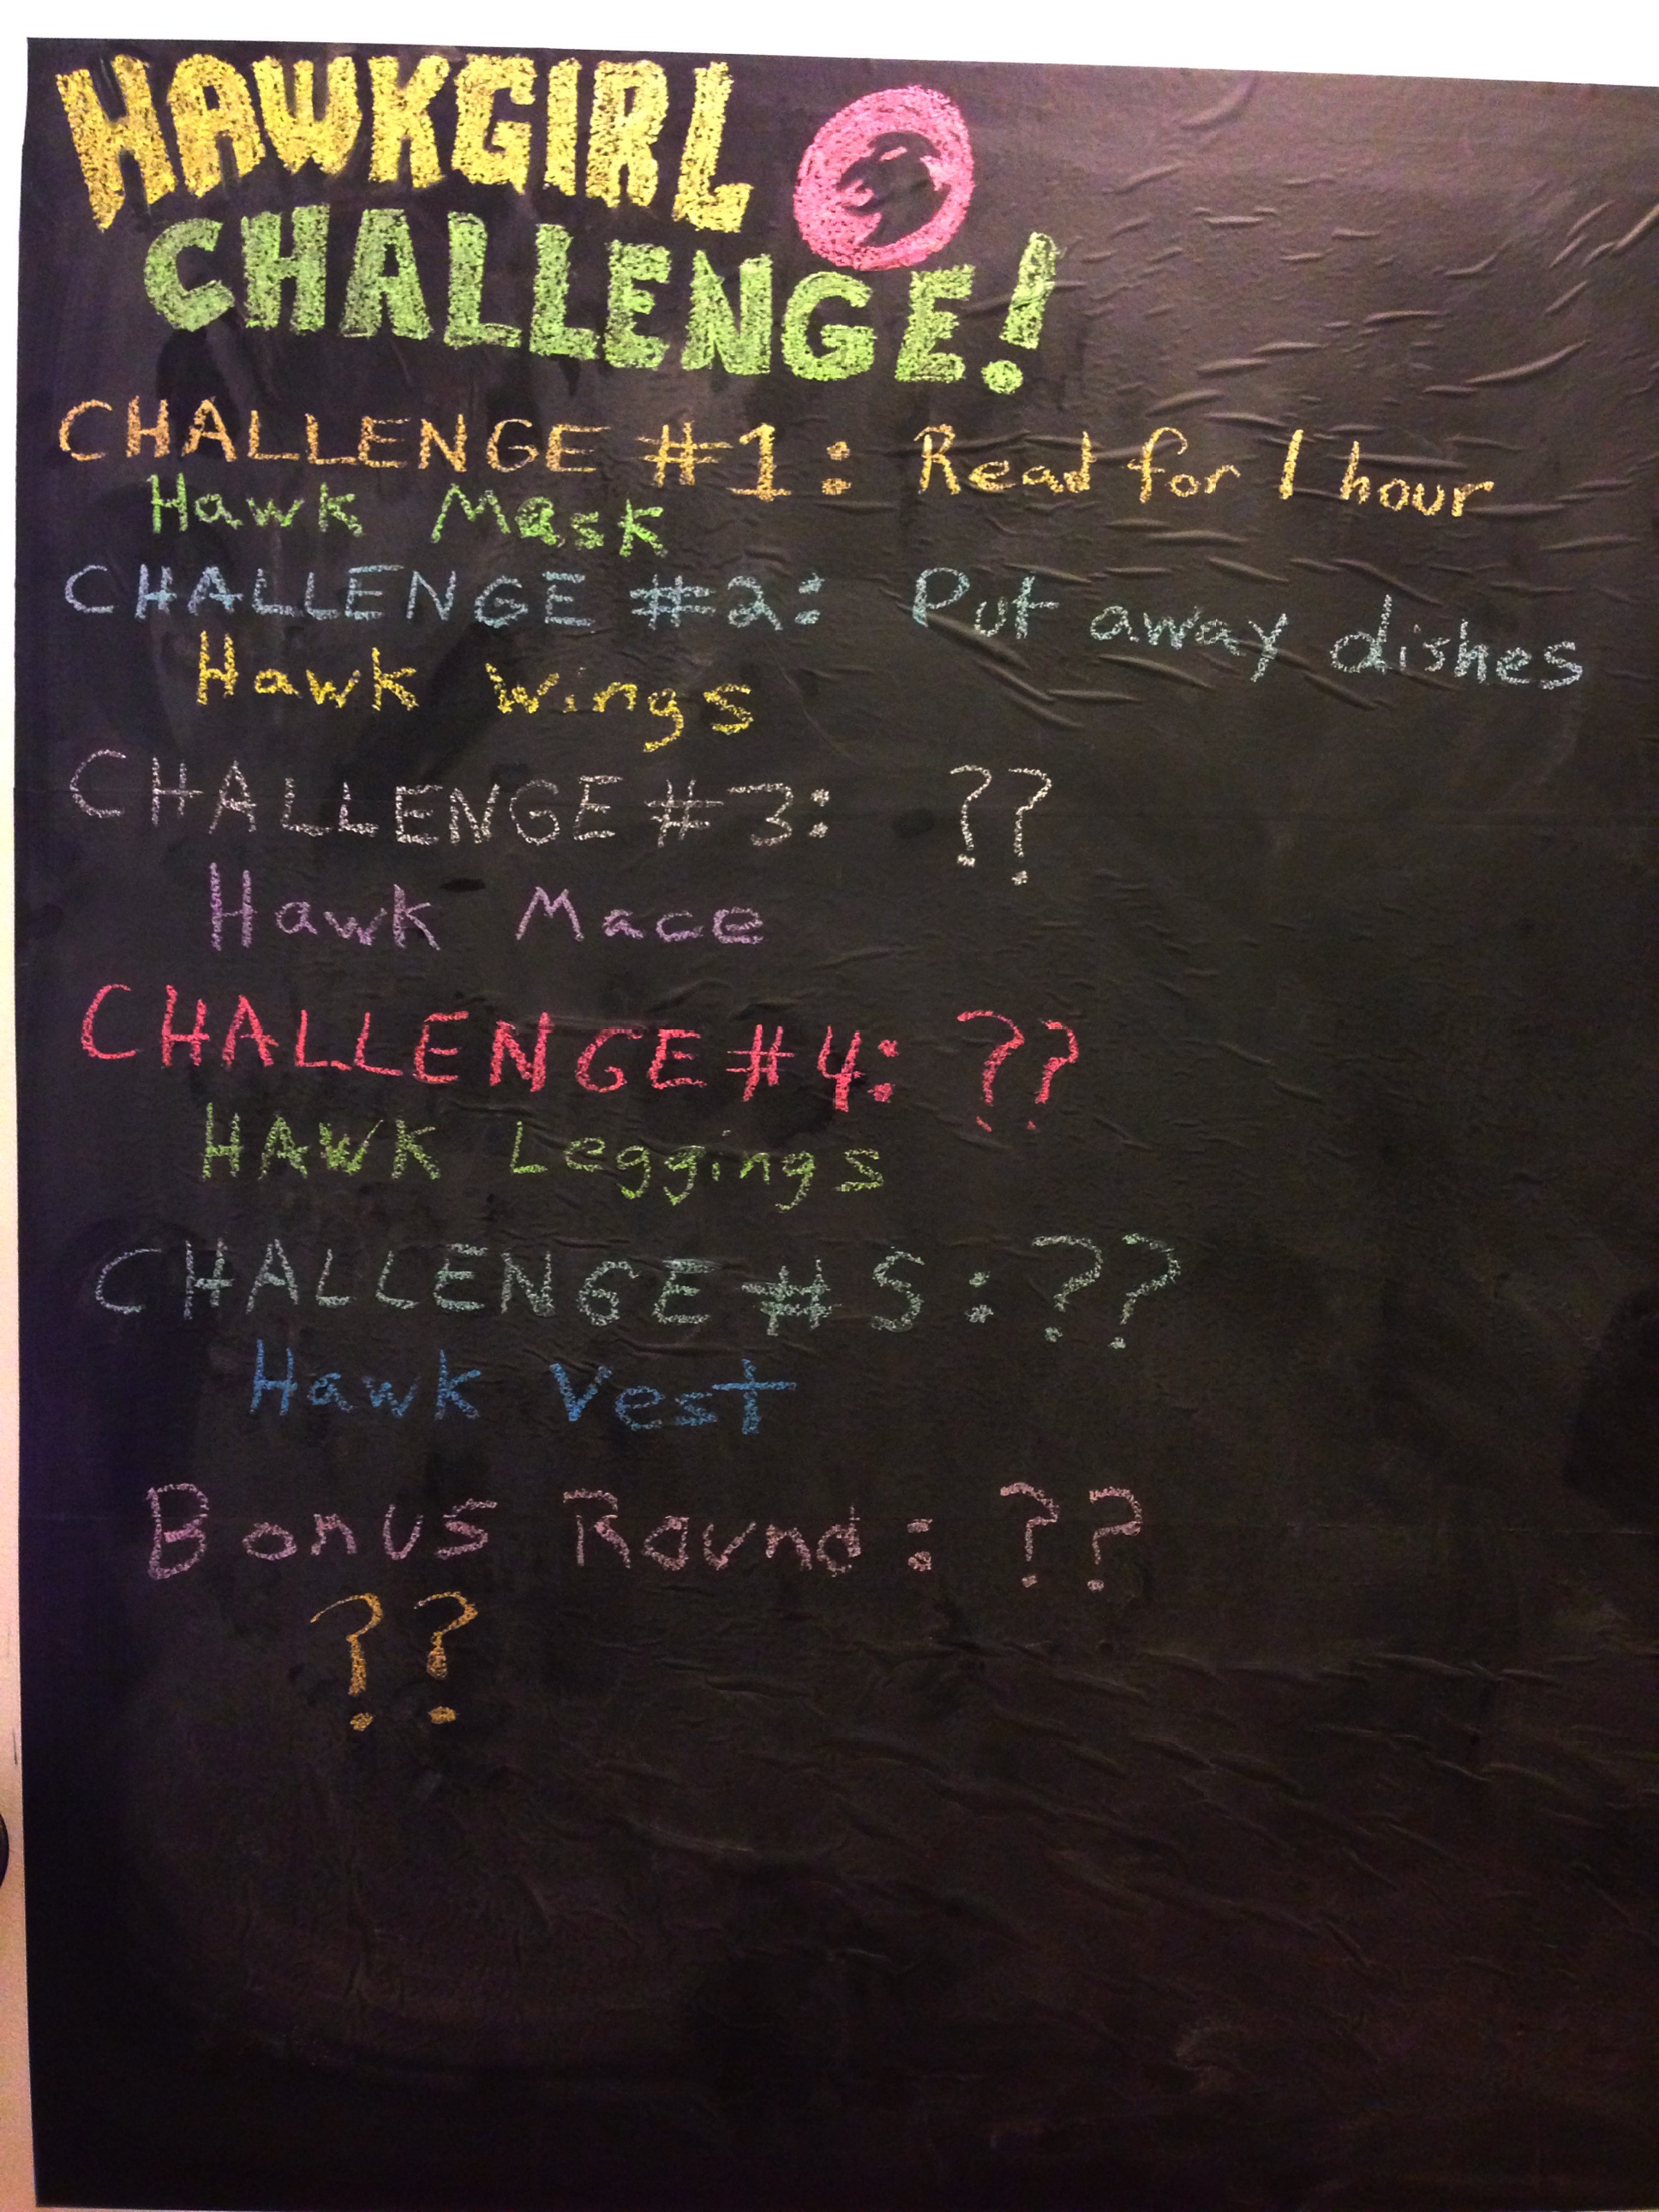 HAWKGIRL
CHALLENGE!
CHALLENGE #1: Read for 1 hour
Hawk Mask
CHALLENGE #2: Put away dishes
Hawk Wings
CHALLENGE #3: ??
Hawk Mace
CHALLENGE #4: ??
HAWK Leggings
CHALLENGE #5: ??
Hawk Vest
Bonus Round: ??
??